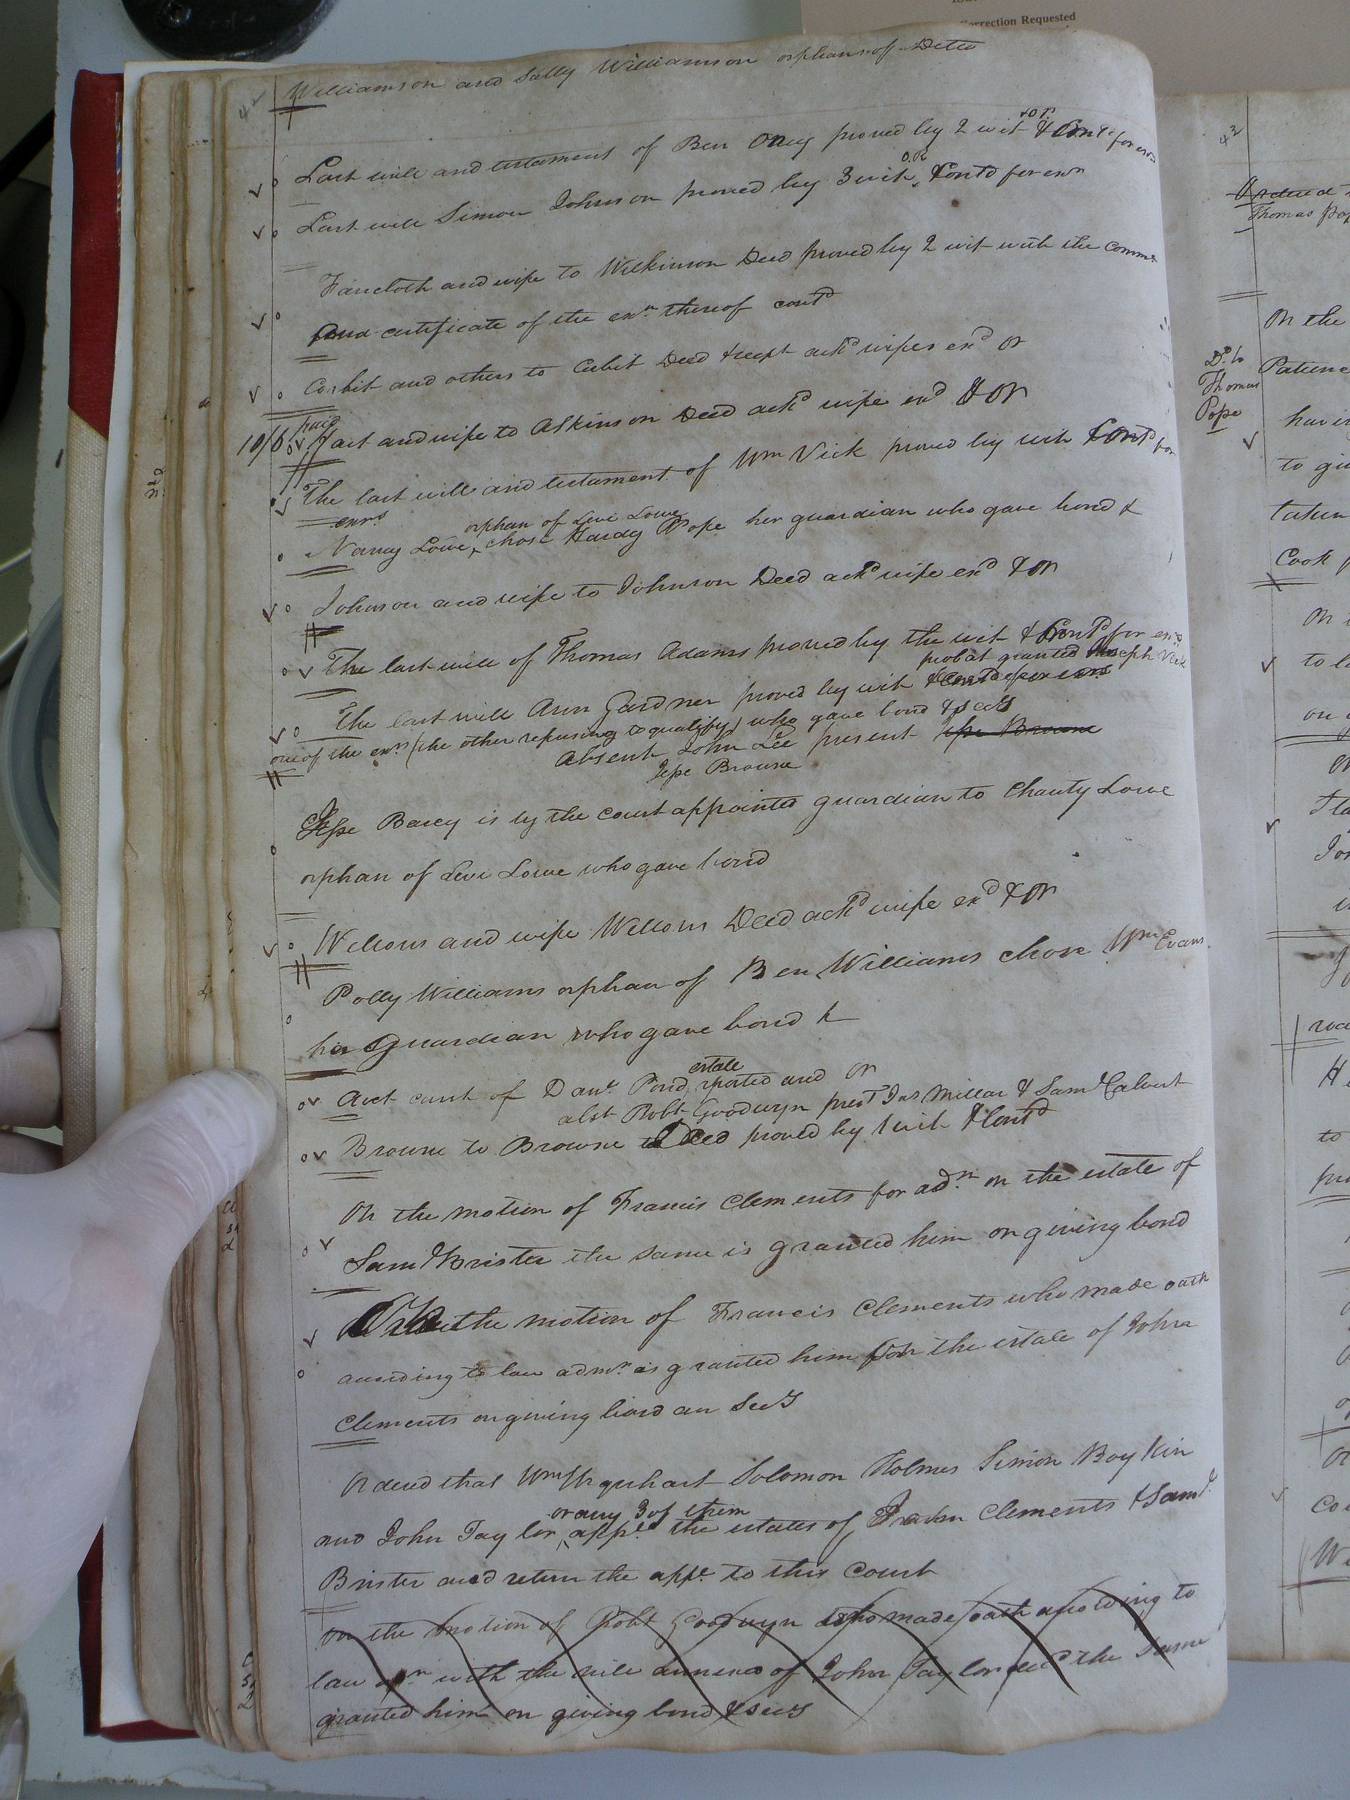 Correction Requested
42
Williamson and Sally Williamson orphans of Ditto
Last will and testament of Ben Oney proved by 2 wit & OR & Contd for exn
Last will Simon Johnson proved by 3 wit, OR & Contd for exn
Faircloth and wife to Wilkinson Deed proved by 2 wit with the commn
and certificate of the exn thereof contd
Corbit and others to Corbit Deed & recpt ackd wifes exd OR
10/6 paid Hart and wife to Atkinson Deed ackd wife exd & OR
The last will and testament of Wm Vick proved by wit & Contd for
exrs
orphan of Levi Lowe
Nancy Lowe, chose Hardy Pope her guardian who gave bond &
Johnson and wife to Johnson Deed ackd wife exd & OR
The last will of Thomas Adams proved by the wit & Contd for exn
probat granted Joseph Vick
The last will Ann Gardner proved by wit & Contd for exn
one of the exrs (the other refusing to qualify) who gave bond & secy
Absent John Lee present Jesse Browne
Jesse Browne
Jesse Barey is by the court appointed guardian to Charity Lowe
orphan of Levi Lowe who gave bond
Wellons and wife Wellons Deed ackd wife exd & OR
Polly Williams orphan of Ben Williams chose Wm Evans
her Guardian who gave bond &
estate
Acct curt of Danl Pond, reported and OR
abst Robt Goodwyn prest Jas Millar & Saml Calvert
Browne to Browne Deed proved by 1 wit & Contd
On the motion of Francis Clements for adn on the estate of
Saml Brister the same is granted him on giving bond
the motion of Francis Clements who made oath
according to law admn is granted him on the estate of John
Clements on giving bond an Secy
Ordered that Wm Urquhart Solomon Holmes Simon Boykin
or any 3 of them
and John Taylor, appe the estates of Clements & Saml
Brister and return the appt to this Court
On the motion of Robt Goodwyn who made oath according to
law with the will annexed of John Taylor decd the same
granted him on giving bond & secy
43
Ordered
Thomas Pop
On the
Do to
Thomas
Pope
Patienc
havin
to gi
taken
Cook
to l
on
to